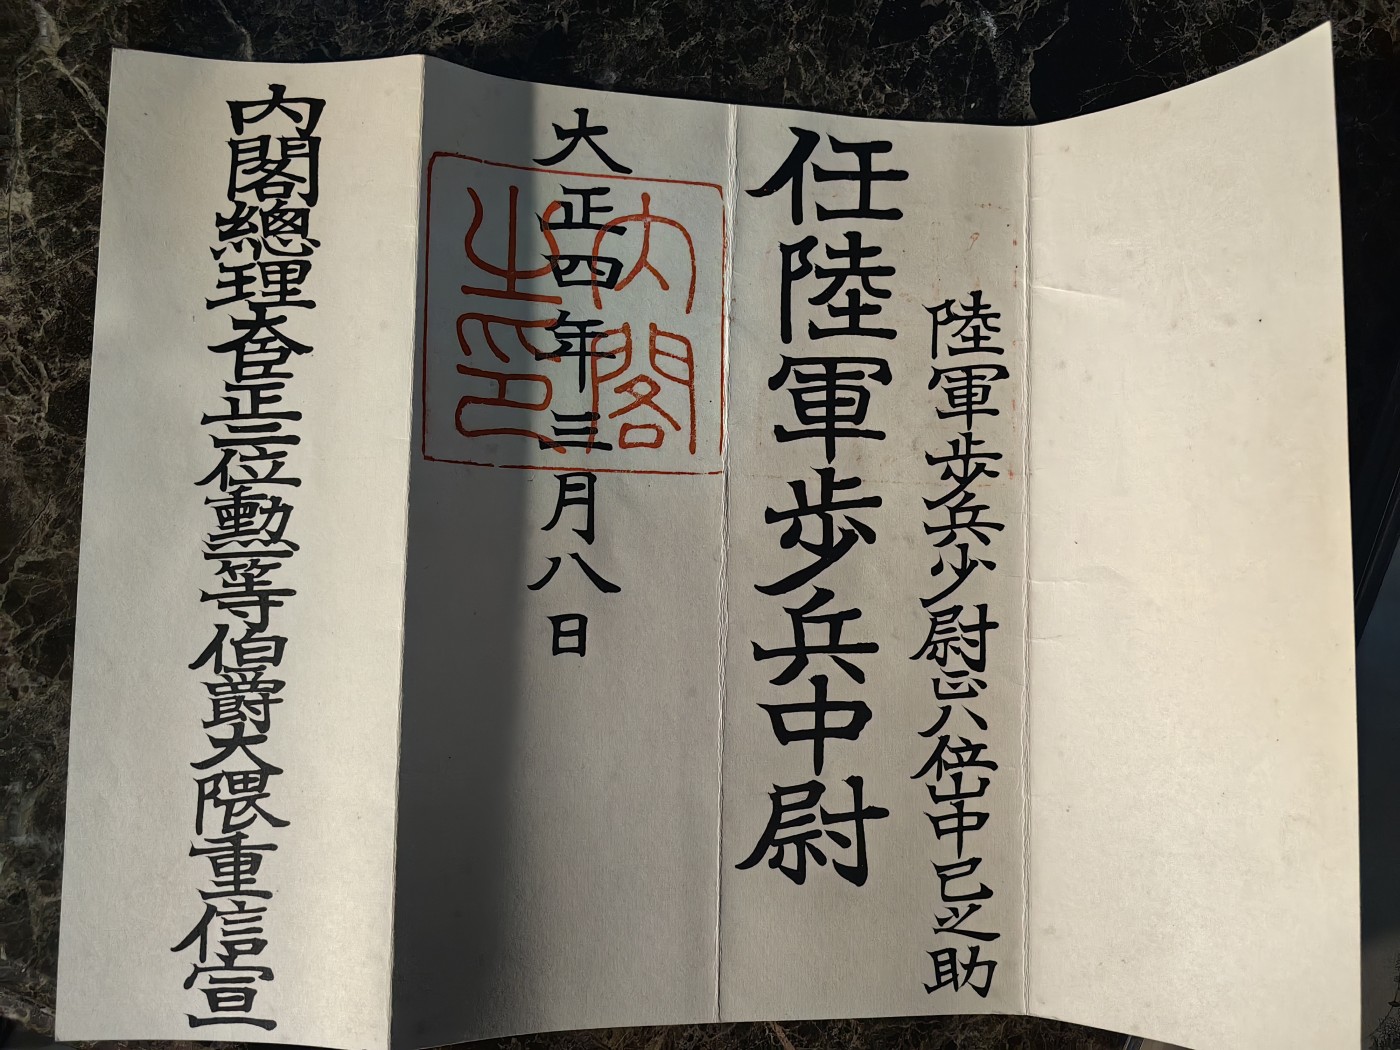 陸軍歩兵少尉正八位山中巳之助
任陸軍歩兵中尉
大正四年三月八日
内閣之印
内閣總理大臣正二位勲一等伯爵大隈重信宣